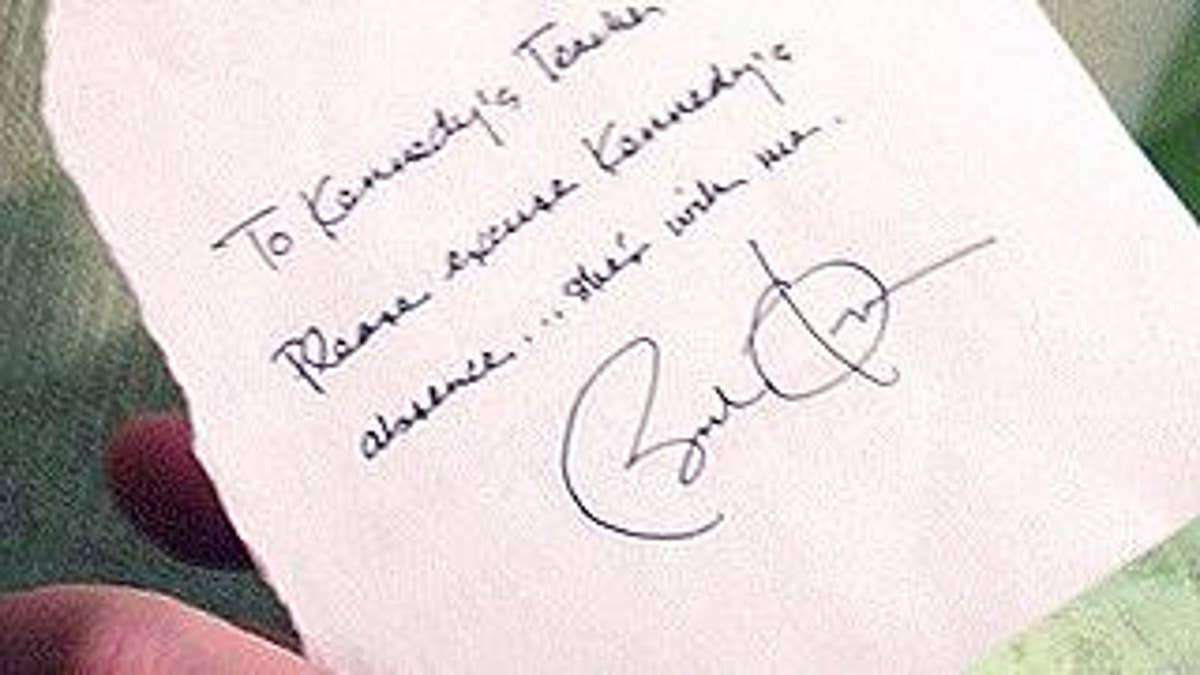 To Kennedy's Teacher
Please excuse Kennedy's
absence... she's with me.